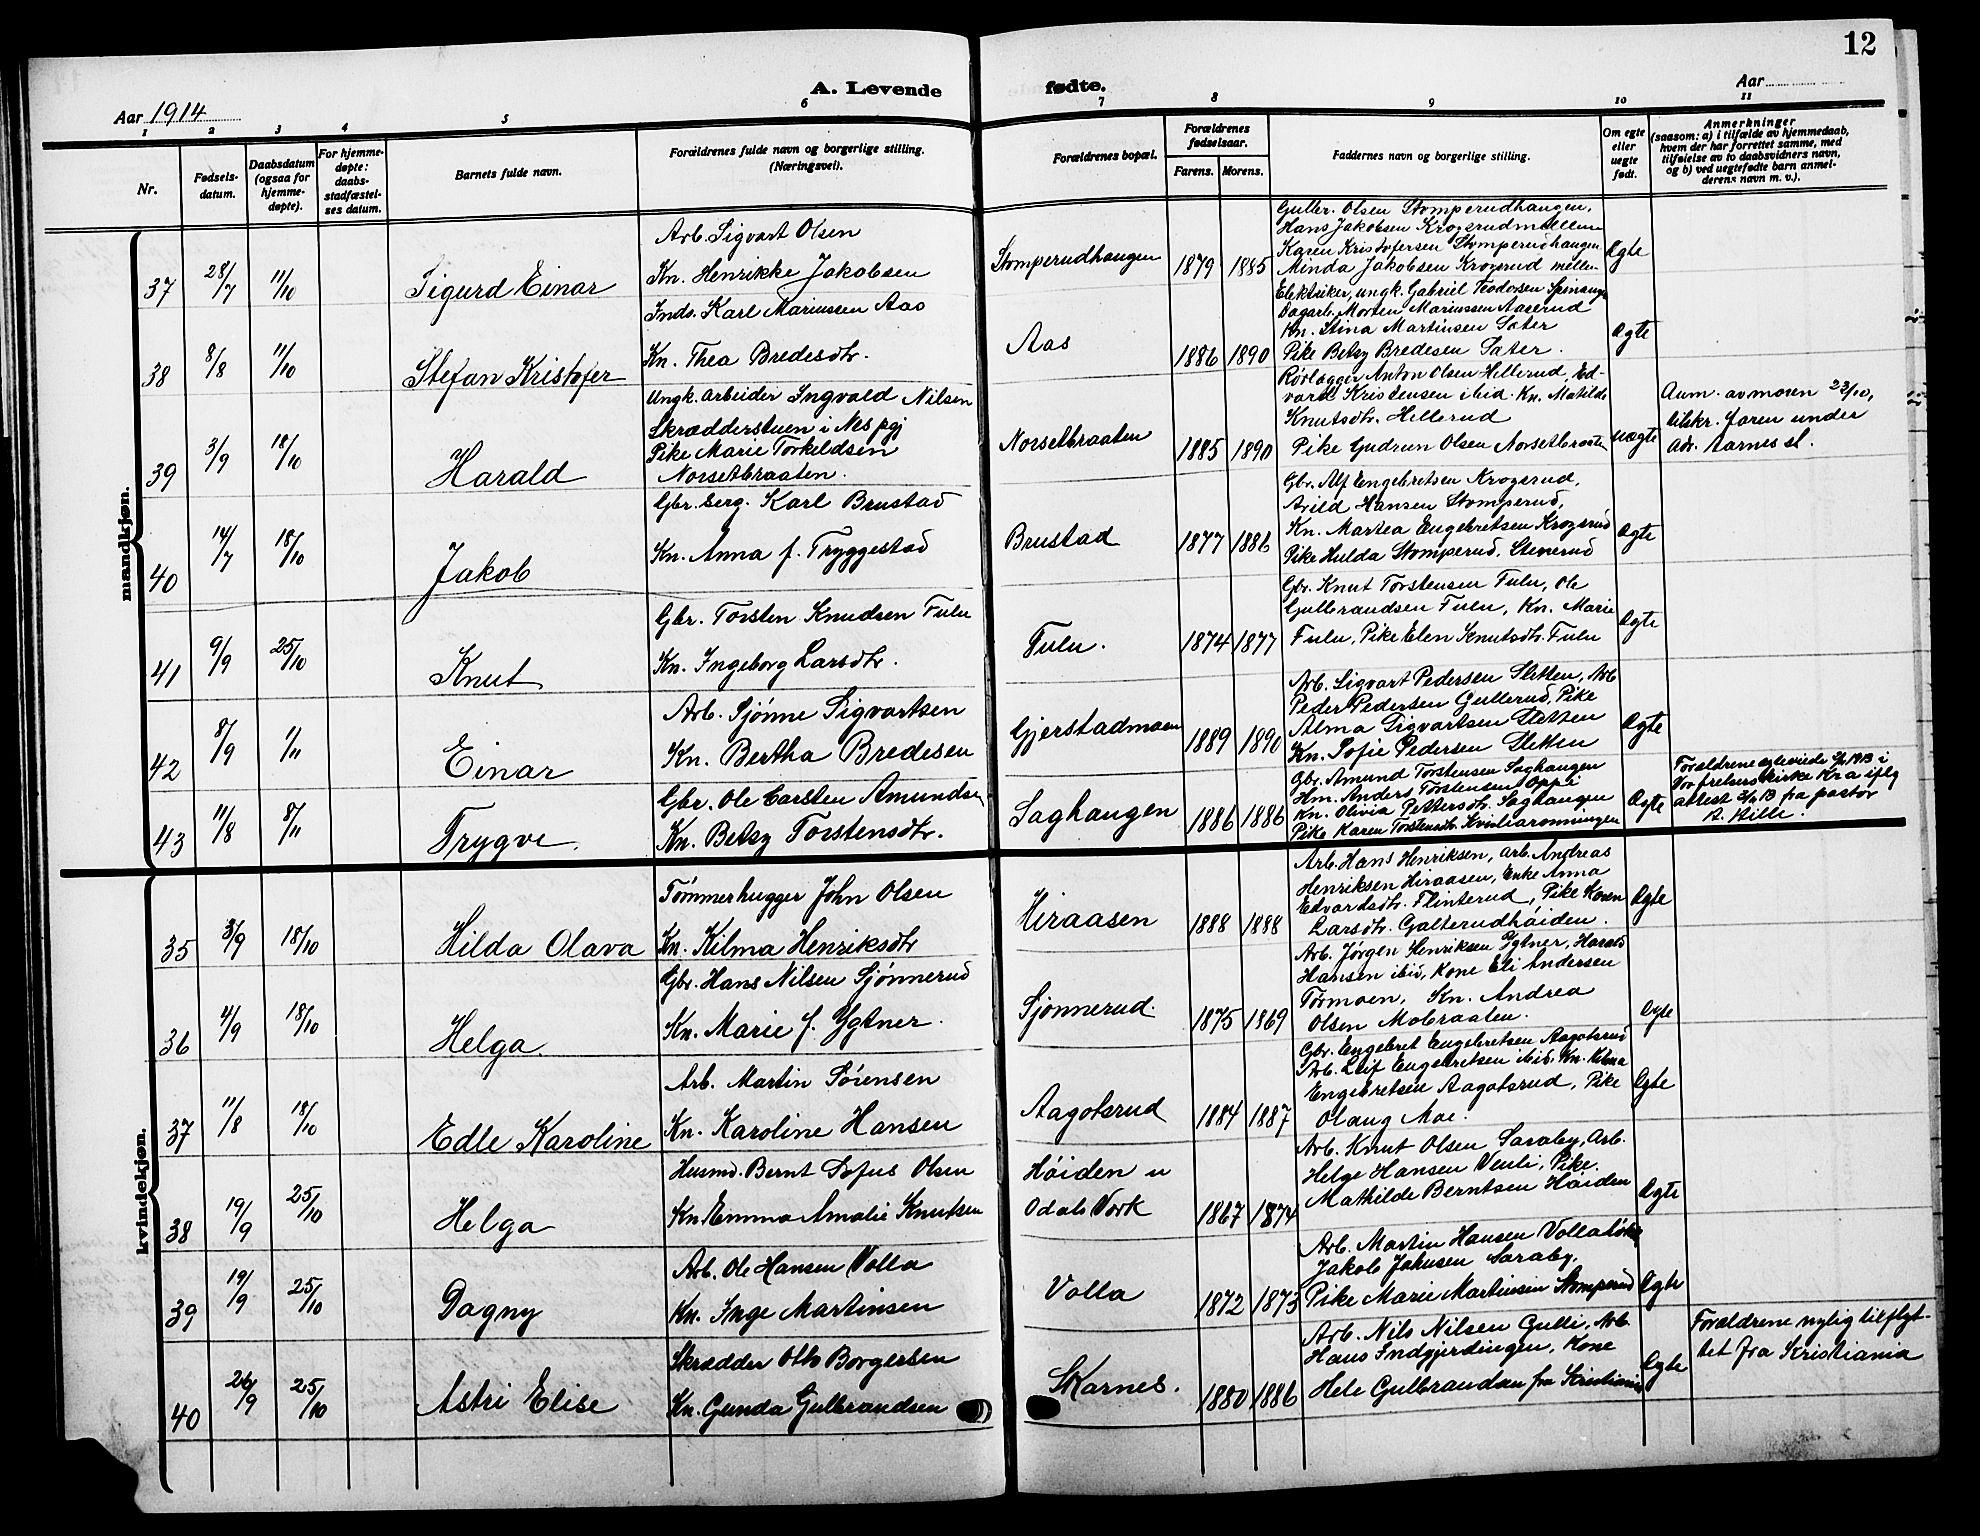 12
A. Levende
fødte.
Aar 1914
Aar
1 2 3 4 5 6 7 8 9 10 11
Nr.
Fødsels-
datum.
Daabsdatum
(ogsaa for
hjemme-
døpte).
For hjemme-
døpte:
daabs-
stadfæstel-
ses datum.
Barnets fulde navn.
Forældrenes fulde navn og borgerlige stilling.
(Næringsvei).
Forældrenes bopæl.
Forældrenes
fødselsaar.
Farens. Morens.
Faddernes navn og borgerlige stilling.
Om egte
eller
uegte
født.
Anmerkninger
(saasom: a) i tilfælde av hjemmedaab,
hvem der har forrettet samme, med
tilføielse av to daabsvidners navn,
og b) ved uegtefødte barn anmel-
derens navn m. v.).
mandkjøn.
37 28/7 11/10 Sigurd Einar
Arb. Sigvart Olsen
Kn. Henrikke Jakobsen
Stomperudhaugen 1879 1885
Gulbr. Olsen Stomperudhaugen,
Hans Jakobsen Krogsrudmellem
Karen Kristofersen Stomperudhaugen
Minda Jakobsen Krogsrud mellem
Egte
38 8/8 11/10 Stefan Kristofer
Inds. Karl Mariussen Aas
Kn. Thea Bredesdtr.
Aas 1886 1890
Elektriker, ungk. Gabriel Teodorsen
Dagarb. Morten Mariussen Aaserud
Kn. Stina Martinsen Sater
Pike Betsy Bredesen Sater.
Egte
39 3/9 18/10 Harald
Ungk. arbeider Ingvald Nilsen
Skrædderstuen i Nes pgj
Pike Marie Torkildsen
Norsetbraaten.
Norsetbraaten 1885 1890
Rørlægger Anton Olsen Hellerud, Ed-
vard Kristensen ibid. Kn. Matilde
Knutsdtr. Hellerud
Pike Gudrun Olsen Norsetbraaten
uægte
Anm. av moren 23/10,
tilskr. faren under
adr. Aarnes st.
40 14/7 18/10 Jakob
Gbr. serg. Karl Brustad
Kn. Anna f. Tryggestad
Brustad 1877 1886
Gbr. Alf Engebretsen Krogsrud,
Arild Hansen Stomperud,
Kn. Martea Engebretsen Krogsrud
Pike Hulda Stomperud, Stenerud
Egte
41 9/9 25/10 Knut
Gbr. Torsten Knudsen Fulu
Kn. Ingeborg Larsdtr.
Fulu. 1874 1877
Gbr. Knut Torstensen Fulu, Ole
Gulbrandsen Fulu, Kn. Marie
Fulu, Pike Elen Knutsdtr. Fulu
Egte
42 8/9 1/11 Einar
Arb. Sjønne Sigvartsen
Kn. Bertha Bredesen
Gjerstadmoen 1889 1890
Arb. Sigvart Pedersen Sletten, Arb
Peder Pedersen Gullerud, Pike
Alma Sigvartsen Sletten
Kn. Sofie Pedersen Sletten
Egte
43 11/8 8/11 Trygve.
Gbr. Ole Carsten Amundsen
Kn. Betsy Torstensdtr.
Saghaugen 1886 1886
Gbr. Amund Torstensen Saghaugen
Hm. Anders Torstensen Oppi
Kn. Olivia Pettersdtr. Saghaugen
Pike Karen Torstensdtr. Kvisliaromningen
Egte
Forældrene egteviede 1913 i
Vor frelsers kirke Kra iflg
attest fra pastor
A. Hille.
kvindekjøn.
35 3/9 18/10 Hilda Olava
Tømmerhugger John Olsen
Kn. Kilma Henriksdtr
Hiraasen 1888 1888
Arb. Hans Henriksen, Arb. Andreas
Henriksen Hiraasen, Enke Anna
Edvardsdtr. Flinterud, Pike Karen
Larsdtr. Galterudhøiden.
Egte
36 4/9 18/10 Helga.
Gbr. Hans Nilsen Sjønnerud
Kn. Marie f. Ygtner.
Sjønnerud. 1875 1869
Arb. Jørgen Henriksen Ygtner, Harald
Hansen ibid, Kone Eli Andersen
Tormoen, Kn. Andrea
Olsen Mobraaten.
Egte
37 11/8 18/10 Edle Karoline
Arb. Martin Sörensen
Kn. Karoline Hansen
Aagotsrud 1884 1887
Gbr. Engebret Engebretsen Aagotsrud
Arb. Leif Engebretsen ibid. Kn. Kilma
Engebretsen Aagotsrud, Pike
Olaug Moe.
Egte
38 19/9 25/10 Helga
Husmd. Bernt Sofus Olsen
Kn. Emma Amalie Knutsen
Høiden u
Odals Værk 1867 1874
Arb. Knut Olsen Saraby, Arb.
Helge Hansen Venli, Pike.
Mathilde Berntsen Høiden
Egte
39 19/9 25/10 Dagny
Arb. Ole Hansen Volla
Kn. Inge Martinsen
Volla 1872 1873
Arb. Martin Hansen Volla
Jakob Jahnsen Saraby,
Pike Marie Martinsen Stomperud
Egte
40 26/9 25/10 Astri Elise
Skrædder Otto Borgersen
Kn. Gunda Gulbrandsen
Skarnes. 1880 1886
Arb. Nils Nilsen Gulli, Arb
Hans Indgjerdingen, Kone
Hele Gulbrandsen fra Kristiania
Egte
Forældrene nylig tilflyt-
tet fra Kristiania